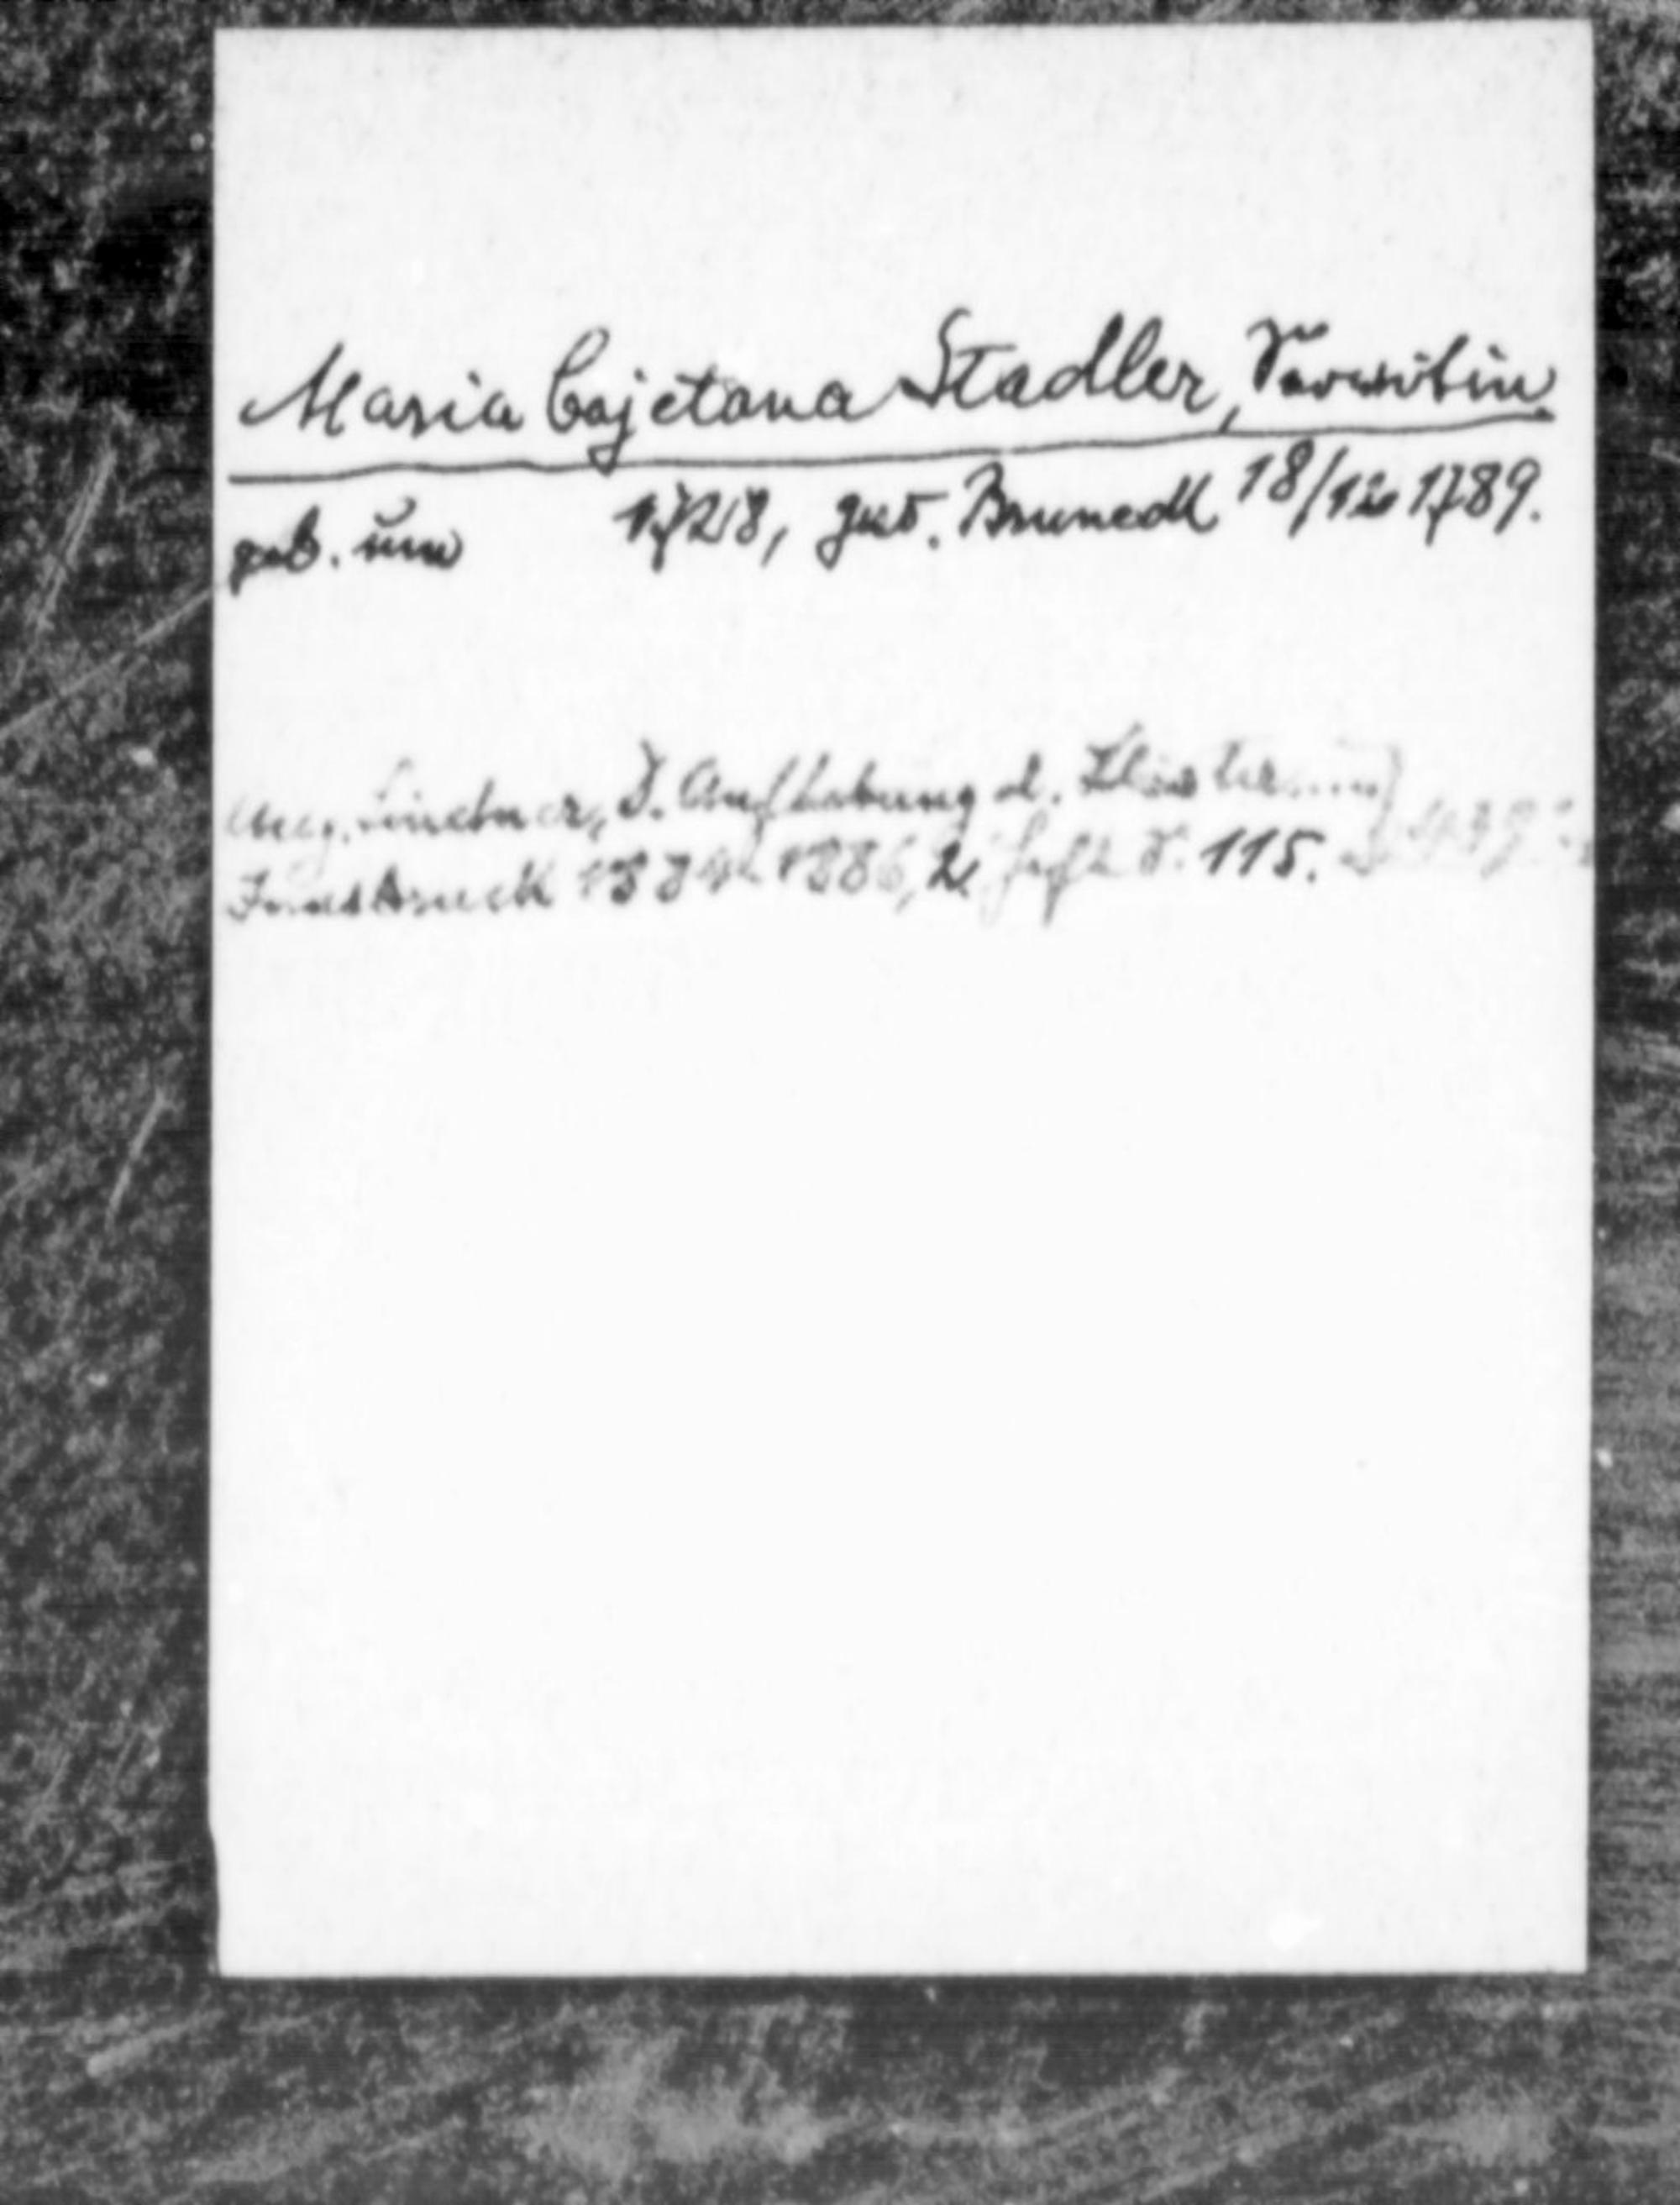 Maria Cajetana Stadler, Servitin.
geb. um 1728, gest. Bruneck 18/12 1789.
Aug. Lindner, D. Aufhebung d. Klöster
Innsbruck 1884-1886, 2 Heft S. 115.